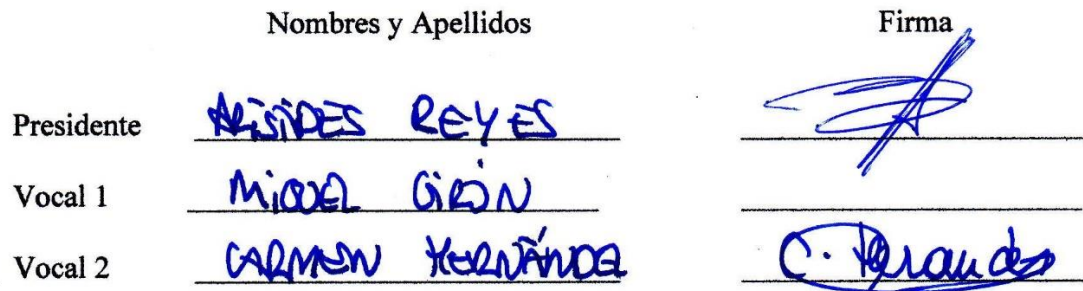 Nombres y Apellidos Firma
Presidente ARISIDES REYES
Vocal 1 MIGUEL GIRÓN
Vocal 2 CARMEN HERNÁNDEZ C. Hernández